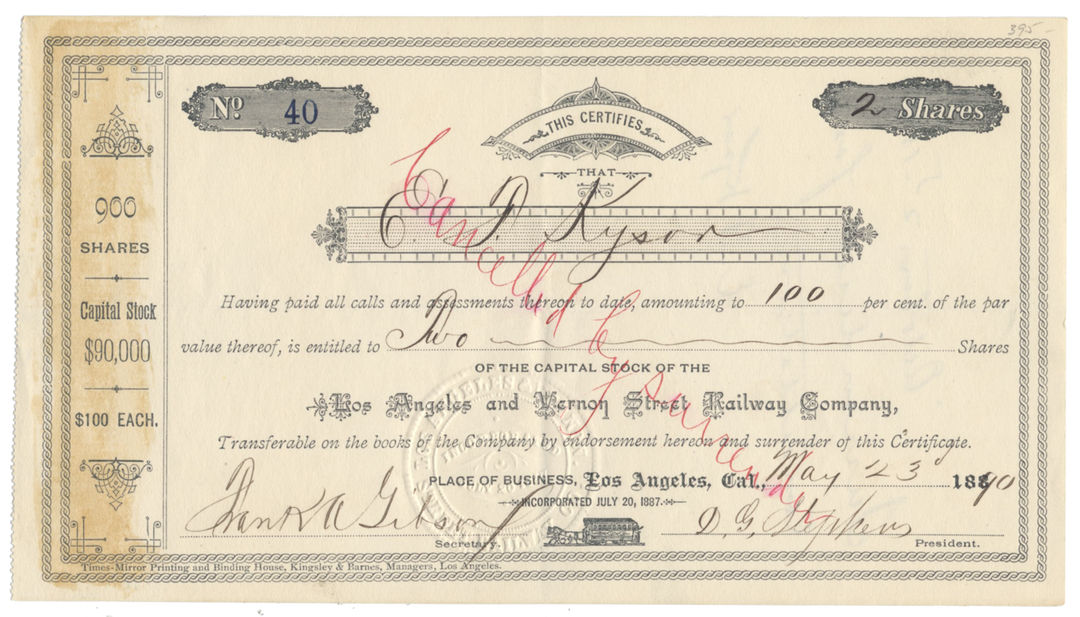 395 -
No. 40
2 Shares
THIS CERTIFIES
THAT
E. F. Kysor
900
SHARES
Capital Stock
$90,000
$100 EACH.
Having paid all calls and assessments thereon to date, amounting to 100 per cent. of the par
value thereof, is entitled to Two Shares
OF THE CAPITAL STOCK OF THE
Los Angeles and Vernon Street Railway Company,
Transferable on the books of the Company by endorsement hereon and surrender of this Certificate.
PLACE OF BUSINESS, Los Angeles, Cal., May 23d 1890
INCORPORATED JULY 20, 1887.
Frank A Gibson
Secretary.
D. G. Stephens
President.
Times-Mirror Printing and Binding House, Kingsley & Barnes, Managers, Los Angeles.
Cancelled by surrender